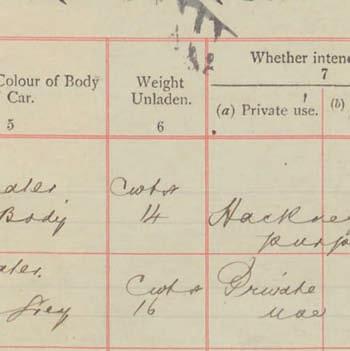 Colour of Body
Car.
5
Weight
Unladen.
6
Whether inten
7
(a) Private use.
(b)
Body
Cwts
14
Hackne
purp
Grey
Cwts
16
Private
use